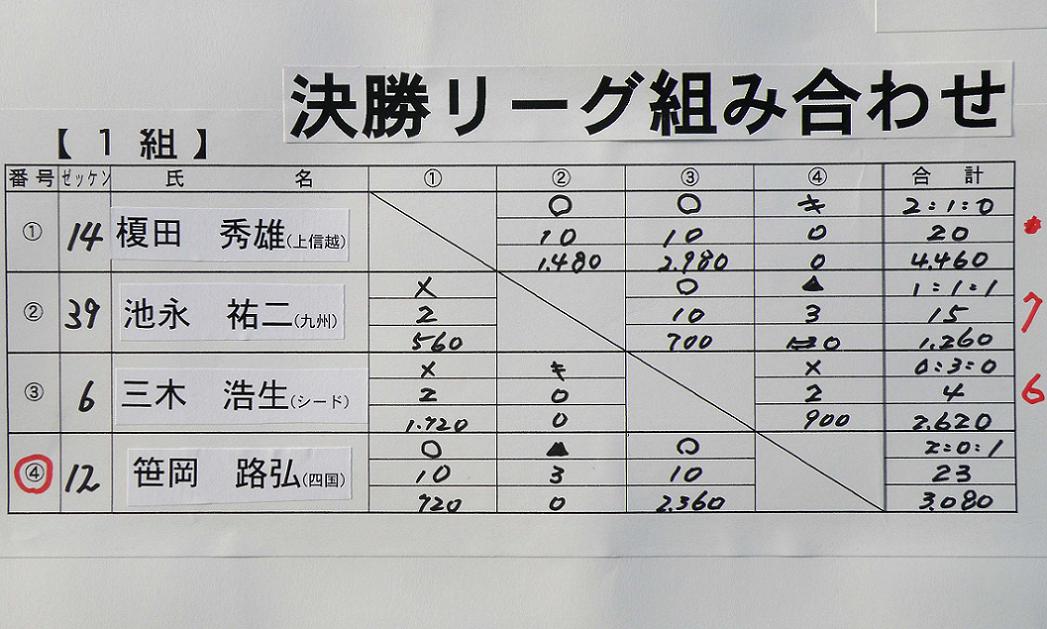 決勝リーグ組み合わせ
【 1 組 】
番号 ゼッケン 氏 名 ① ② ③ ④ 合 計
○ ○ キ 2:1:0
① 14 榎田 秀雄(上信越) 10 10 0 20
1.480 2.980 0 4.460
× ○ ▲ 1:1:1
② 39 池永 祐二(九州) 2 10 3 15 7
560 700 0 1.260
× キ × 0:3:0
③ 6 三木 浩生(シード) 2 0 2 4 6
1.720 0 900 2.620
○ ▲ ○ 2:0:1
④ 12 笹岡 路弘(四国) 10 3 10 23
720 0 2.360 3.080